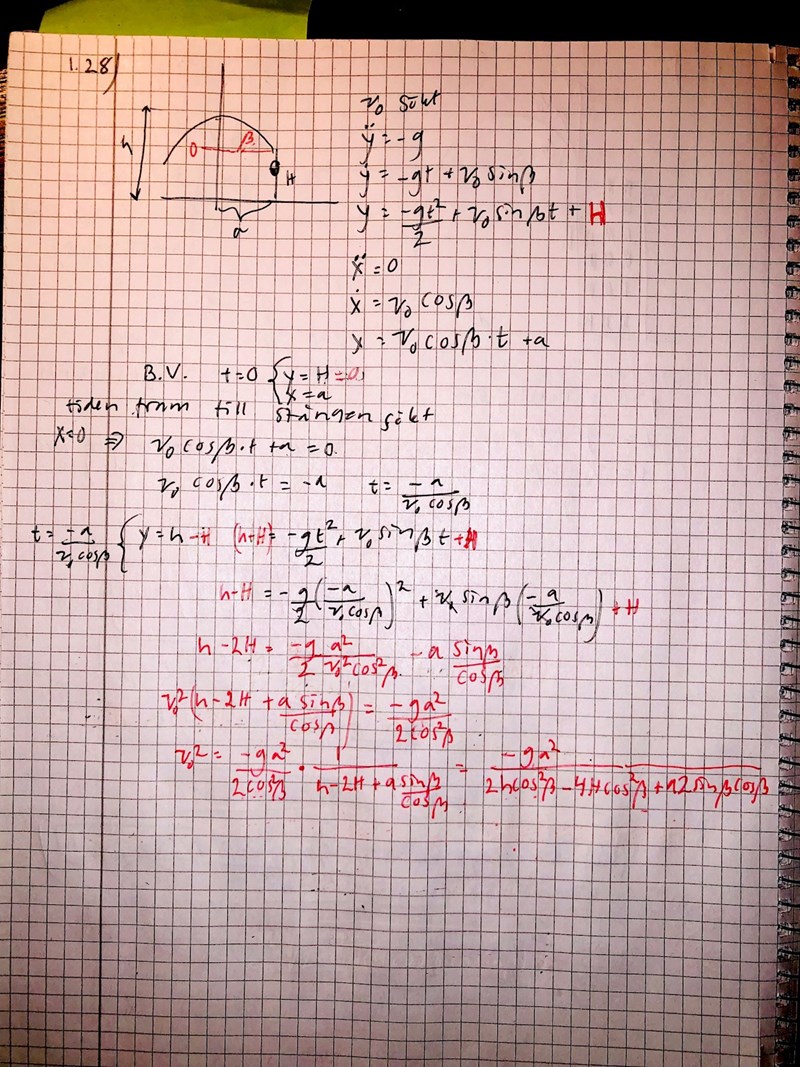 1.28)
h
0
β
H
a
v₀ sökt
ÿ = -g
ẏ = -gt + v₀ sinβ
y = -gt²/2 + v₀ sinβ t + H
ẍ = 0
ẋ = v₀ cosβ
x = v₀ cosβ · t + a
B.V. t=0 { y = H
x = a
tiden fram till stången sökt
x=0 ⇒ v₀ cosβ · t + a = 0
v₀ cosβ · t = -a t = -a/(v₀ cosβ)
t = -a/(v₀ cosβ) { y = h - H (h-H) = -gt²/2 + v₀ sinβ t + H
h-H = -g/2 (-a/(v₀ cosβ))² + v₀ sinβ (-a/(v₀ cosβ)) + H
h - 2H = -g a²/(2 v₀² cos²β) - a sinβ/cosβ
v₀² (h - 2H + a sinβ/cosβ) = -ga²/(2cos²β)
v₀² = -ga²/(2cos²β) · 1/(h-2H + a sinβ/cosβ) = -ga²/(2hcos²β - 4Hcos²β + a2sinβcosβ)